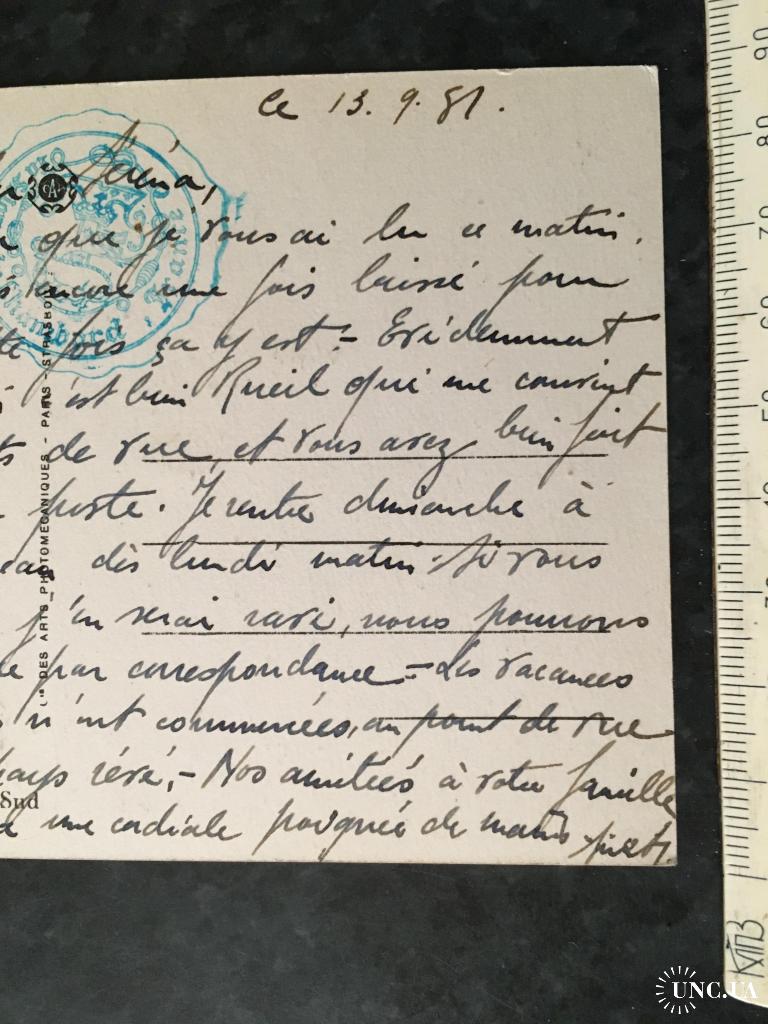 Ce 13.9.51.
que je vous ai lu ce matin.
encore une fois laissé pour
fois ça y est - Evidemment
c'est bien Rueil qui me convient
de vue, et vous avez bien fait
poste. Je rentre dimanche à
dès lundi matin. Si vous
j'en serai ravi, nous pourrons
par correspondance - Les vacances
n'ont commencées, au point de vue
rêvé, - Nos amitiés à votre famille
une cordiale poignée de mains
DES ARTS PHOTOMECANIQUES - PARIS - STRASBOU
CAP
Chambord
Sud
90
80
70
60
50
40
30
КПЗ
UNC.UA